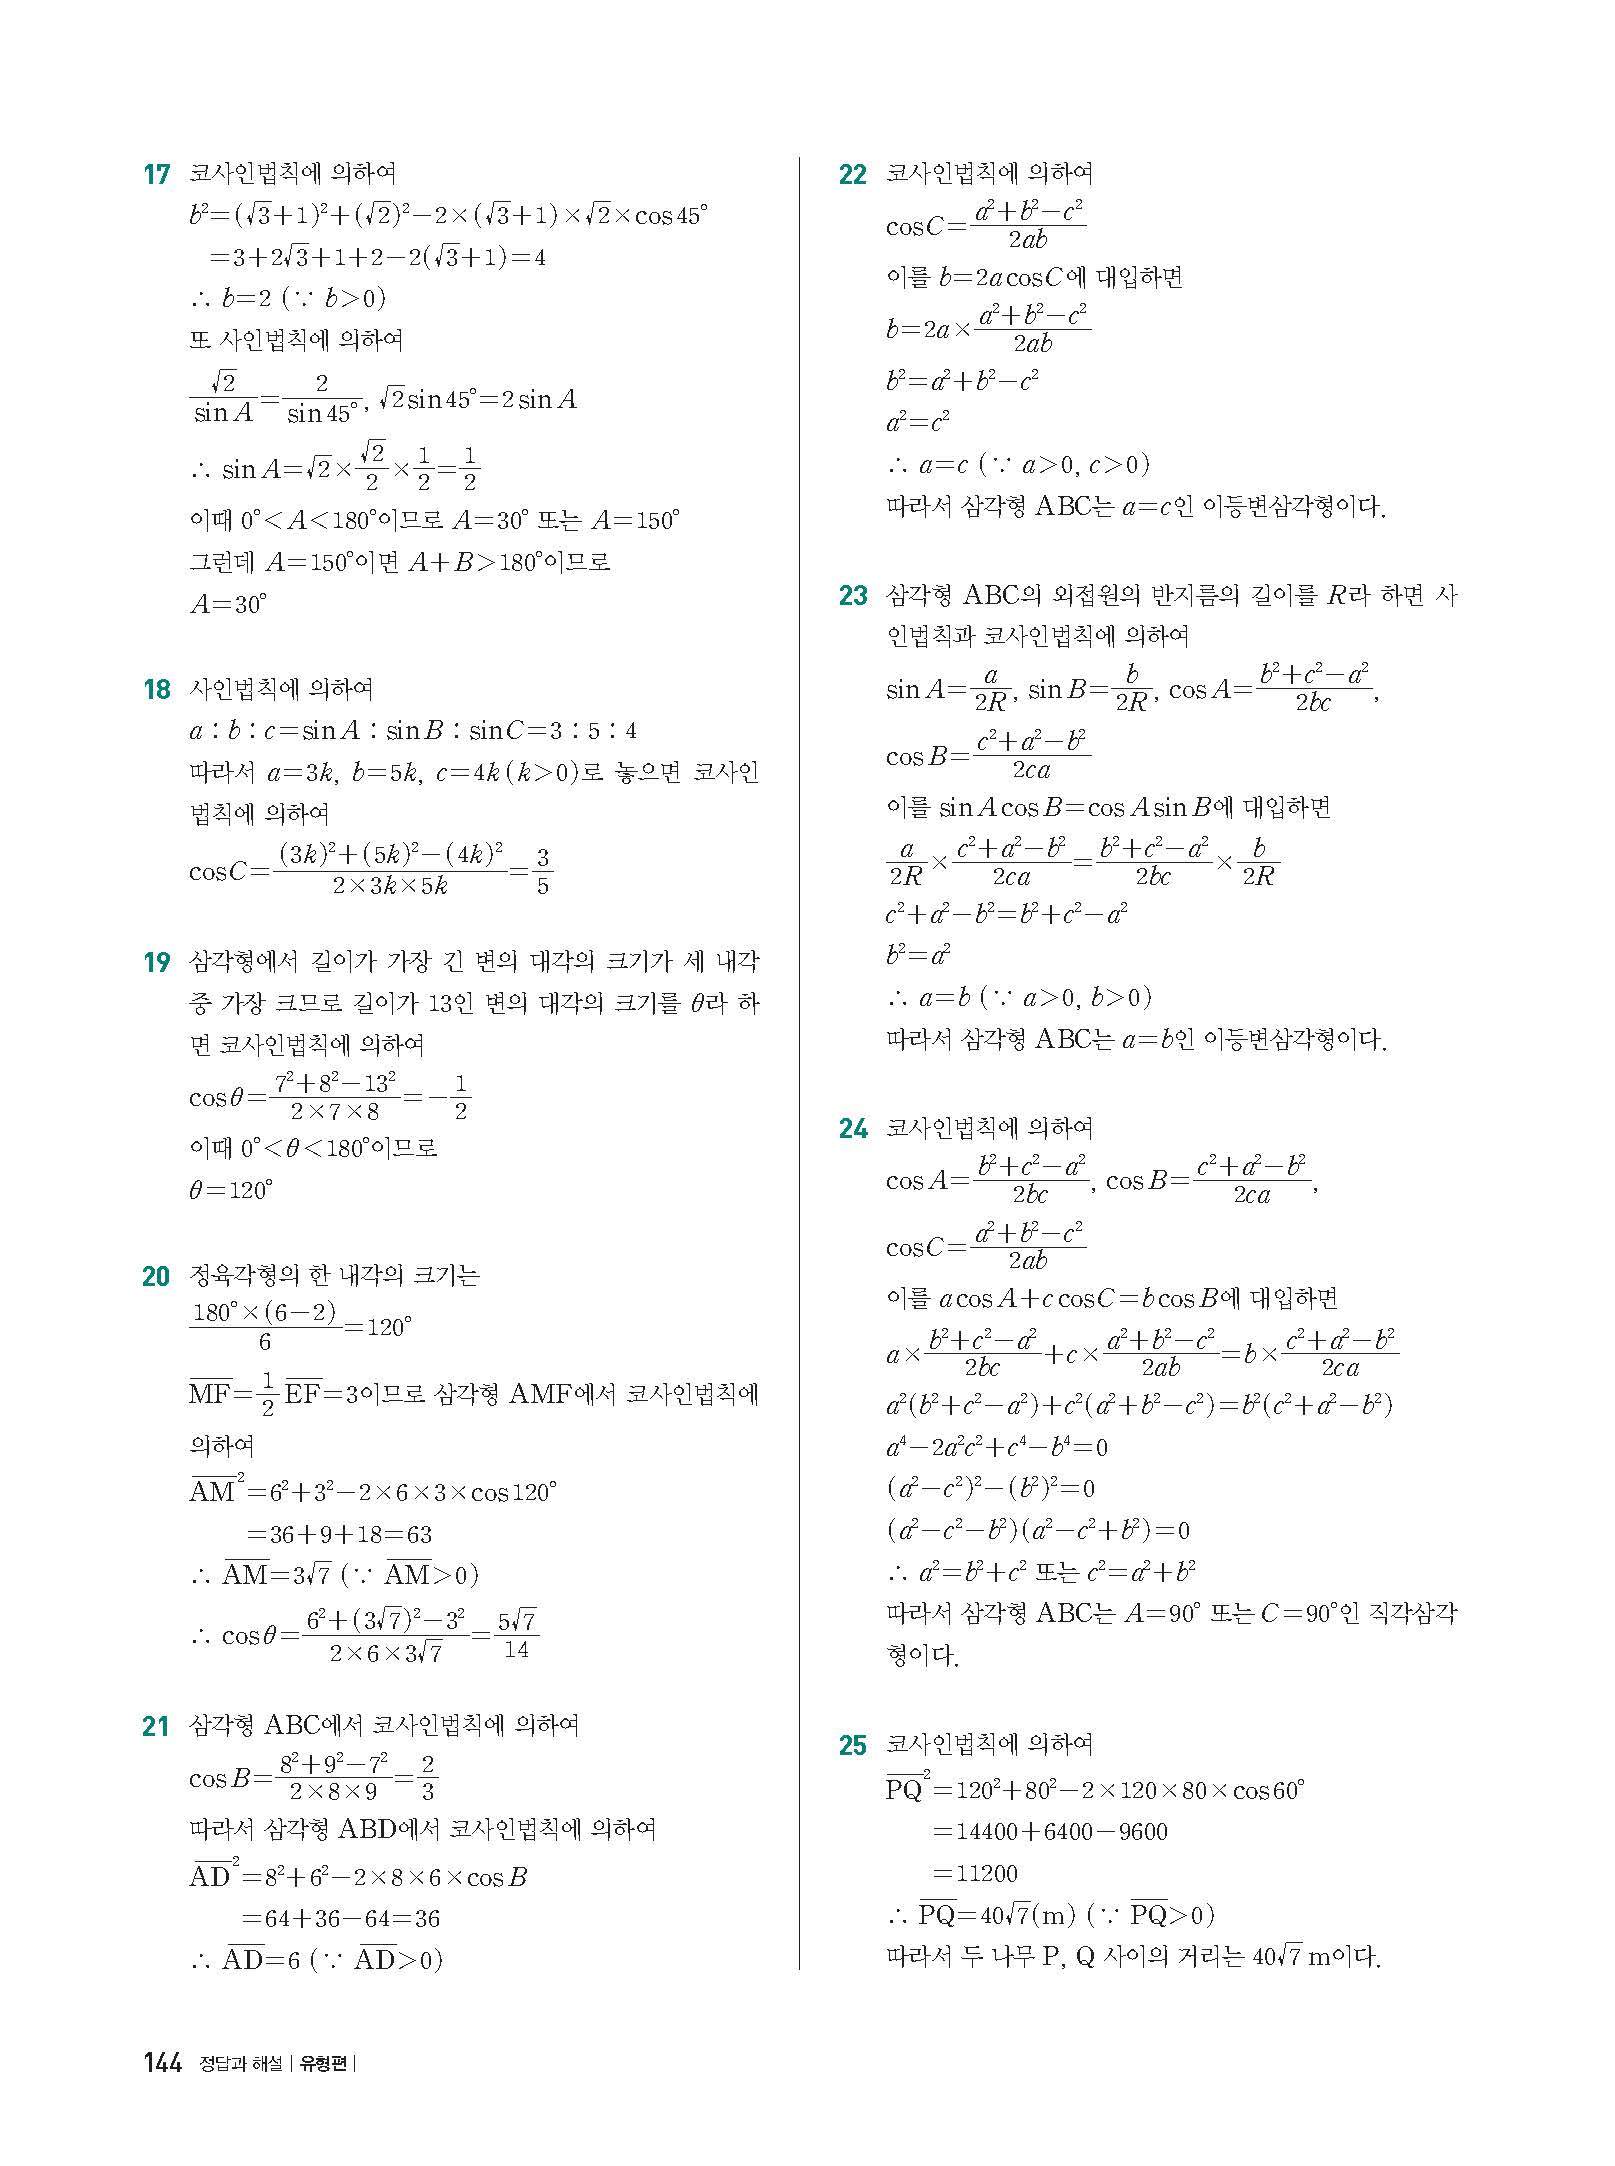 17 코사인법칙에 의하여
b²=(√3+1)²+(√2)²-2×(√3+1)×√2×cos45°
=3+2√3+1+2-2(√3+1)=4
∴ b=2 (∵ b>0)
또 사인법칙에 의하여
√2/sin A=2/sin 45°, √2 sin 45°=2 sin A
∴ sin A=√2×√2/2×1/2=1/2
이때 0°<A<180°이므로 A=30° 또는 A=150°
그런데 A=150°이면 A+B>180°이므로
A=30°
18 사인법칙에 의하여
a:b:c=sin A:sin B:sin C=3:5:4
따라서 a=3k, b=5k, c=4k(k>0)로 놓으면 코사인
법칙에 의하여
cos C=((3k)²+(5k)²-(4k)²)/(2×3k×5k)=3/5
19 삼각형에서 길이가 가장 긴 변의 대각의 크기가 세 내각
중 가장 크므로 길이가 13인 변의 대각의 크기를 θ라 하
면 코사인법칙에 의하여
cos θ=(7²+8²-13²)/(2×7×8)=-1/2
이때 0°<θ<180°이므로
θ=120°
20 정육각형의 한 내각의 크기는
(180°×(6-2))/6=120°
M̅F̅=1/2 E̅F̅=3이므로 삼각형 AMF에서 코사인법칙에
의하여
A̅M̅²=6²+3²-2×6×3×cos 120°
=36+9+18=63
∴ A̅M̅=3√7 (∵ A̅M̅>0)
∴ cos θ=(6²+(3√7)²-3²)/(2×6×3√7)=5√7/14
21 삼각형 ABC에서 코사인법칙에 의하여
cos B=(8²+9²-7²)/(2×8×9)=2/3
따라서 삼각형 ABD에서 코사인법칙에 의하여
A̅D̅²=8²+6²-2×8×6×cos B
=64+36-64=36
∴ A̅D̅=6 (∵ A̅D̅>0)
22 코사인법칙에 의하여
cos C=(a²+b²-c²)/2ab
이를 b=2a cos C에 대입하면
b=2a×(a²+b²-c²)/2ab
b²=a²+b²-c²
a²=c²
∴ a=c (∵ a>0, c>0)
따라서 삼각형 ABC는 a=c인 이등변삼각형이다.
23 삼각형 ABC의 외접원의 반지름의 길이를 R라 하면 사
인법칙과 코사인법칙에 의하여
sin A=a/2R, sin B=b/2R, cos A=(b²+c²-a²)/2bc,
cos B=(c²+a²-b²)/2ca
이를 sin A cos B=cos A sin B에 대입하면
a/2R×(c²+a²-b²)/2ca=(b²+c²-a²)/2bc×b/2R
c²+a²-b²=b²+c²-a²
b²=a²
∴ a=b (∵ a>0, b>0)
따라서 삼각형 ABC는 a=b인 이등변삼각형이다.
24 코사인법칙에 의하여
cos A=(b²+c²-a²)/2bc, cos B=(c²+a²-b²)/2ca,
cos C=(a²+b²-c²)/2ab
이를 a cos A+c cos C=b cos B에 대입하면
a×(b²+c²-a²)/2bc+c×(a²+b²-c²)/2ab=b×(c²+a²-b²)/2ca
a²(b²+c²-a²)+c²(a²+b²-c²)=b²(c²+a²-b²)
a⁴-2a²c²+c⁴-b⁴=0
(a²-c²)²-(b²)²=0
(a²-c²-b²)(a²-c²+b²)=0
∴ a²=b²+c² 또는 c²=a²+b²
따라서 삼각형 ABC는 A=90° 또는 C=90°인 직각삼각
형이다.
25 코사인법칙에 의하여
P̅Q̅²=120²+80²-2×120×80×cos 60°
=14400+6400-9600
=11200
∴ P̅Q̅=40√7(m) (∵ P̅Q̅>0)
따라서 두 나무 P, Q 사이의 거리는 40√7 m이다.
144 정답과 해설 | 유형편 |